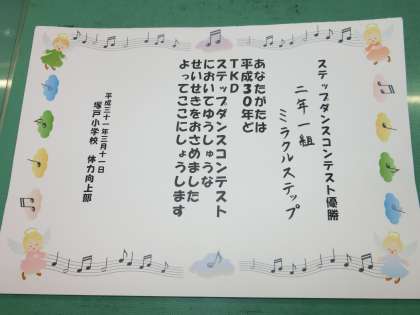 ステップダンスコンテスト優勝
二年一組
ミラクルステップ
あなたがたは
平成30年ど
TKD
ステップダンスコンテスト
においてゆうしゅうな
せいせきをおさめました
よってここにしょうします
平成三十一年三月十一日
塚戸小学校 体力向上部